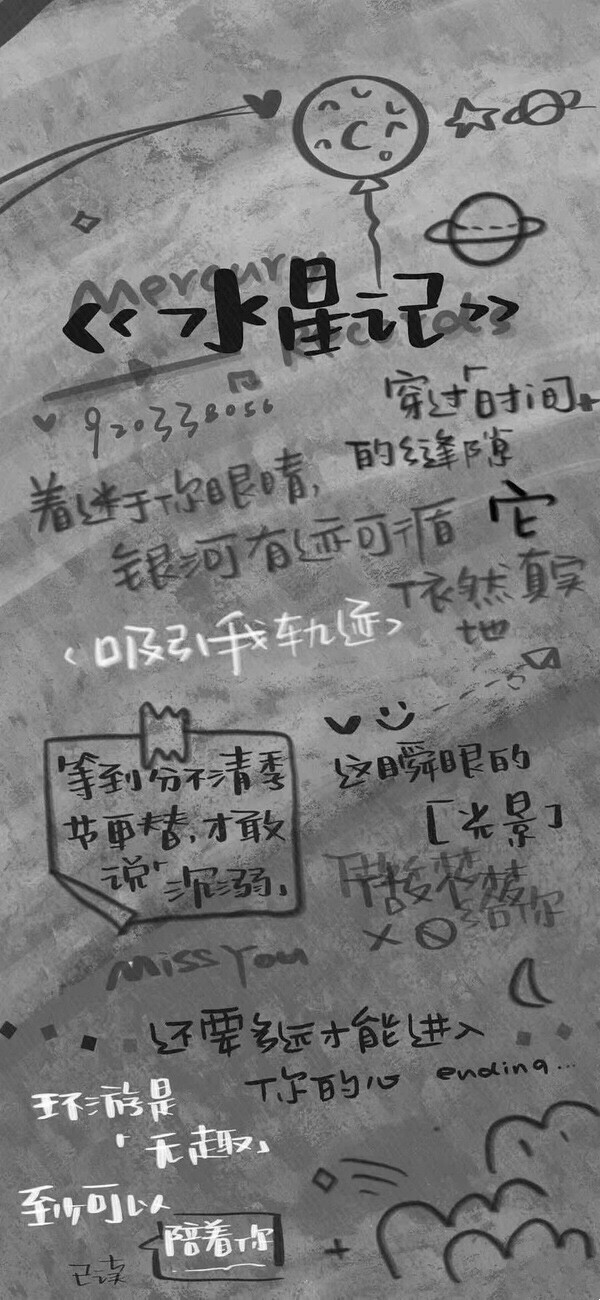 Mercury
《水星记》
Records
920338056
穿过「时间
的缝隙
着迷于你眼睛,
银河有迹可循
它
依然真实
地
<吸引我轨迹>
等到分不清季
节更替,才敢
说「沉溺」
这瞬眼的
[光景]
梦
给你
Miss You
还要多远才能进入
你的心
ending...
环游是
「无趣」
至少可以
陪着你
已读